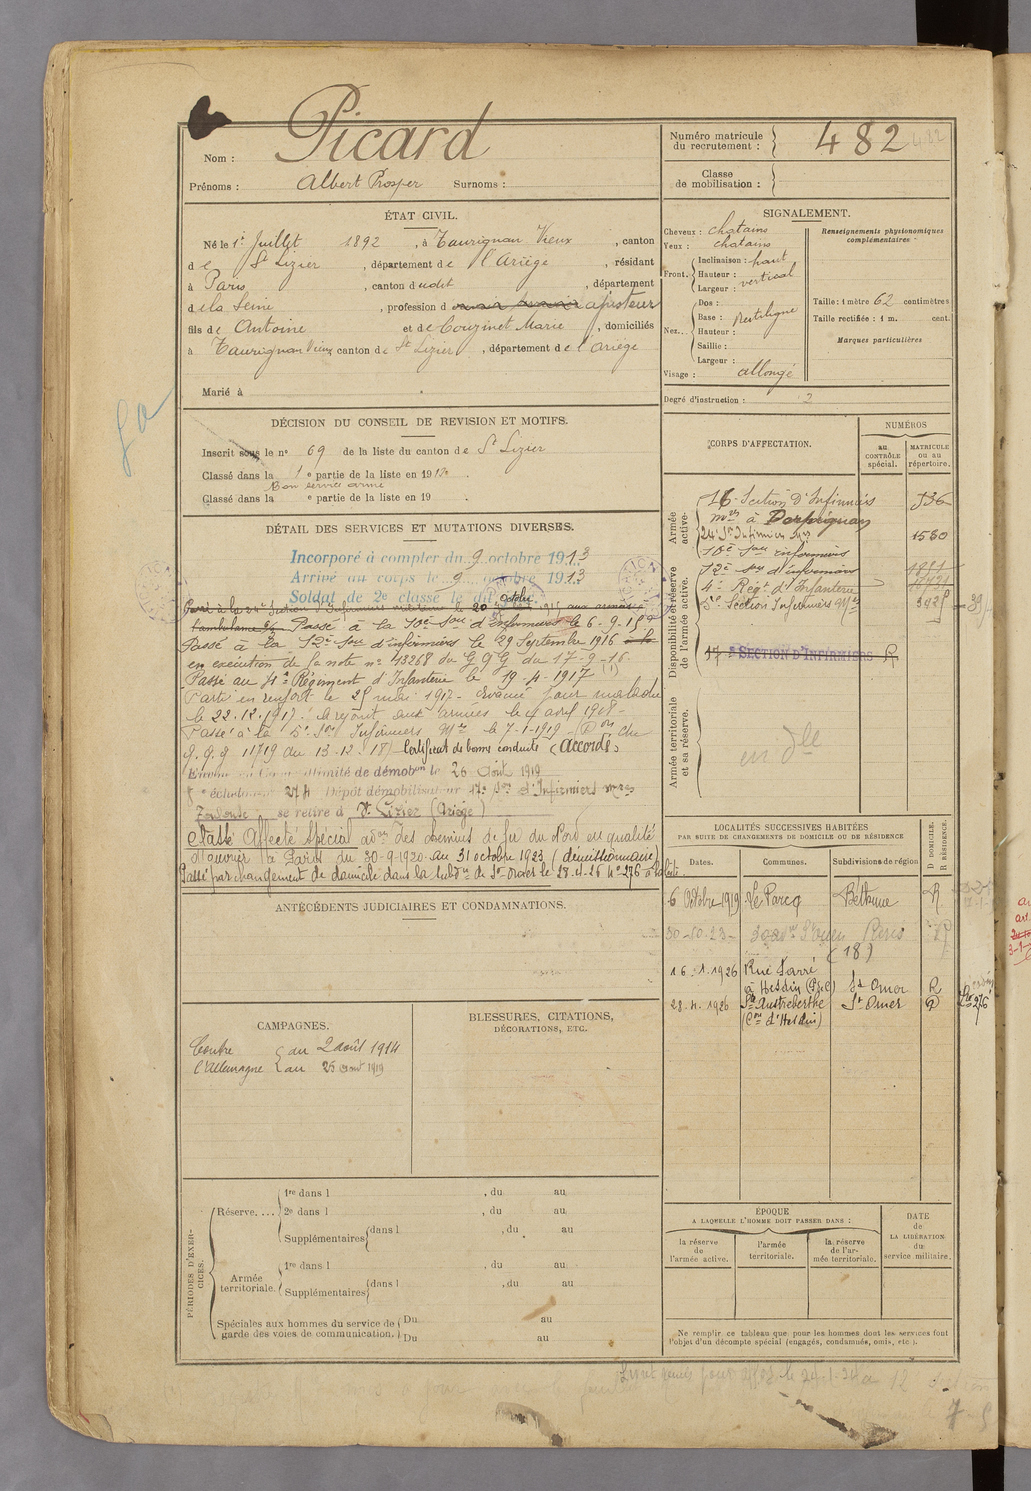 Nom : Picard
Prénoms : Albert Prosper Surnoms :
Numéro matricule du recrutement : 482
Classe de mobilisation :
ÉTAT CIVIL.
Né le 1er Juillet 1892, à Taurignan Vieux, canton
de St Lizier, département de l'Ariège, résidant
à Paris, canton dudit, département
de la Seine, profession d ajusteur
fils de Antoine et de Couzinet Marie, domiciliés
à Taurignan Vieux canton de St Lizier, département de l'Ariège
Marié à
DÉCISION DU CONSEIL DE REVISION ET MOTIFS.
Inscrit sous le no 69 de la liste du canton de St Lizier
Classé dans la 1e partie de la liste en 19
Bon service armé
Classé dans la e partie de la liste en 19 .
DÉTAIL DES SERVICES ET MUTATIONS DIVERSES.
Incorporé à compter du 9 octobre 1913
Arrivé au corps le 9 octobre 1913
Soldat de 2e classe le dit
Passé à la 24e Section d'Infirmiers militaires le 20 octobre 1915 aux armées
l'ambulance Passé à la 10e Son d'Infirmiers le 6.9.15
Passé à la 12e Son d'infirmiers le 29 Septembre 1916
en exécution de la note no 43268 du G Q G du 17-9-16.
Passé au 4e Régiment d'Infanterie le 19.4.1917 (1)
Parti en renfort le 25 mai 1917. Evacué pour maladie
le 22.12.1917. rejoint aux armées le 4 avril 1918-
Passé à la 5e Son Infirmiers Mres le 7-1-1919 - on du
G.Q.G 11719 du 13-12-18) Certificat de bonne conduite (Accordé)
démité de démobon le 26 Août 1919
échelon no 274 Dépôt démobilisateur 17e Son d'Infirmiers mres
Toulouse se retire à St Lizier (Ariège)
Classé Affecté Spécial des chemins de fer du Nord en qualité
d'ouvrier à Paris du 30-9-1920 au 31 octobre 1923 (démissionnaire)
Passé par changement de domicile dans la subdon de St Omer le 28-4-26 No 276
ANTÉCÉDENTS JUDICIAIRES ET CONDAMNATIONS.
CAMPAGNES.
Contre l'Allemagne { du 2 août 1914
au 25 août 1919
BLESSURES, CITATIONS,
DÉCORATIONS, ETC.
PÉRIODES D'EXERCICES.
Réserve.... 1re dans l , du au
2e dans l , du au
Supplémentaires dans l , du au
Armée territoriale. 1re dans l , du au
Supplémentaires dans l , du au
Spéciales aux hommes du service de garde des voies de communication. Du au
Du au
SIGNALEMENT.
Cheveux : chatains
Yeux : chatains
Front. Inclinaison : haut
Hauteur : vertical
Largeur :
Nez... Dos :
Base : Rectiligne
Hauteur :
Saillie :
Largeur :
Visage : allongé
Renseignements physionomiques complémentaires
Taille : 1 mètre 62 centimètres
Taille rectifiée : 1 m. cent.
Marques particulières
Degré d'instruction : 2
CORPS D'AFFECTATION.
NUMÉROS
au CONTRÔLE spécial.
MATRICULE ou au répertoire.
Armée active.
16e Section d'Infirmiers 536
mres à Perpignan
24e Son Infirmiers 1530
10e Son infirmiers
Disponibilité et réserve de l'armée active.
12e Son d'infirmiers 1851
4e Régt d'Infanterie
5e Section Infirmiers Mres
17e SECTION D'INFIRMIERS
Armée territoriale et sa réserve.
LOCALITÉS SUCCESSIVES HABITÉES
PAR SUITE DE CHANGEMENTS DE DOMICILE OU DE RÉSIDENCE
Dates. Communes. Subdivisions de région D DOMICILE. R RÉSIDENCE.
6 Octobre 1919 Le Parcq Béthune R
30-10-23- Paris
(18)
16.1.1926 Rue Farré
à Hesdin (P de C) St Omer R
28.4.1926 Ste Austreberthe St Omer D
(Con d'Hesdin)
ÉPOQUE
A LAQUELLE L'HOMME DOIT PASSER DANS :
la réserve de l'armée active.
l'armée territoriale.
la réserve de l'armée territoriale.
DATE de LA LIBÉRATION du service militaire.
Ne remplir ce tableau que pour les hommes dont les services font
l'objet d'un décompte spécial (engagés, condamnés, omis, etc.).